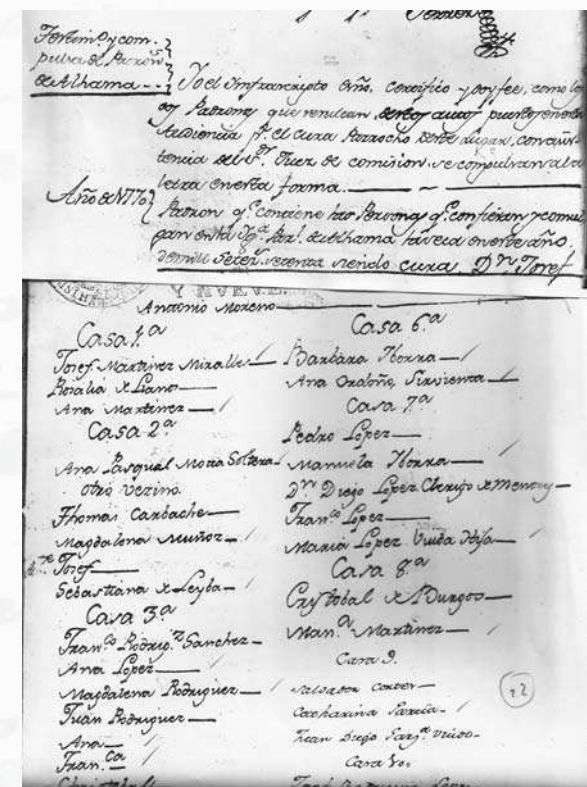 Testim.o y com-
pulsa de Padron.s
de Alhama - -
Yo el Ymfrascripto Ess.no, certifico y doy fee, como
los Padrones que resultan destos autos puestos en esta
Audiencia p.r el cura Parrocho deste Lugar, con asis-
tencia del S.r Juez de comision, se compulsan a la
letra en esta forma.
Año de 1770
Padron q.e contiene las Personas q.e confiesan y comul
gan en la Yg.a Par.l de Alhama
de mill setez.s setenta siendo cura D.n Josef
Antonio Moreno
Casa 1.a
Josef Martinez Miralles
Rosalia de Llanos
Ana Martinez
Casa 2.a
Ana Pasqual Mora Soltera
otro vezino
Thomas Carbache
Magdalena Muñoz
Josef
Sebastiana de Leyba
Casa 3.a
Fran.co Rodrig.z Sanchez
Ana Lopez
Magdalena Rodriguez
Juan Rodriguez
Ana
Fran.ca
Casa 6.a
Barbara Yborra
Ana Ordoño, Sirvienta
Casa 7.a
Pedro Lopez
Manuela Yborra
D.n Diego Lopez Clerigo de Menores
Fran.co Lopez
Maria Lopez Viuda Hija
Casa 8.a
Cristobal de Burgos
Man.a Martinez
Casa 9.
Salvador Cortes
Catharina Garcia
Juan Diego
Casa 10.
22